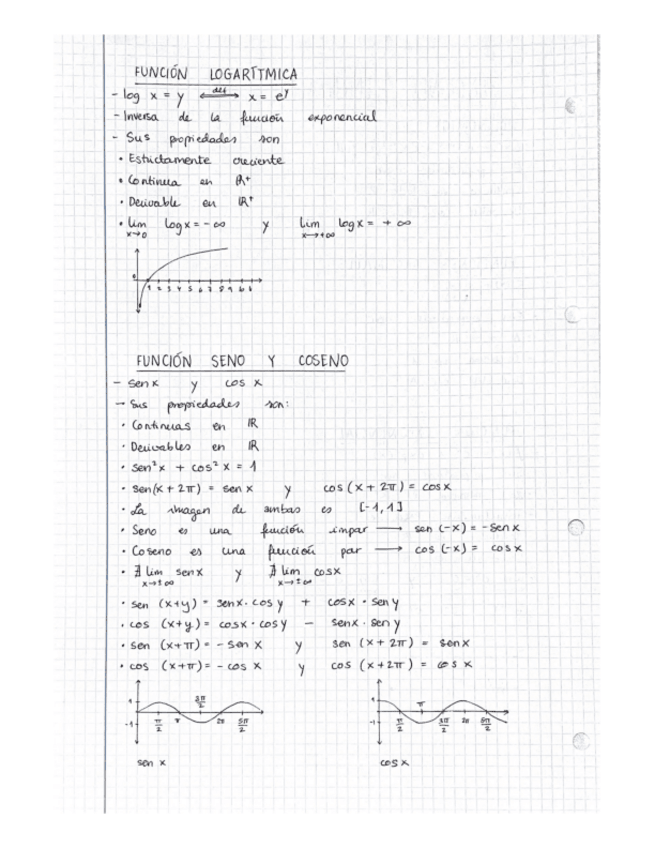 FUNCIÓN LOGARÍTMICA
- log x = y ⟷ def x = e^y
- Inversa de la función exponencial
- Sus propiedades son
• Estrictamente creciente
• Continua en ℝ⁺
• Derivable en ℝ⁺
• lim x→0 log x = -∞ y lim x→+∞ log x = +∞
0 1 2 3 4 5 6 7 8 9
FUNCIÓN SENO Y COSENO
- sen x y cos x
- Sus propiedades son:
• Continuas en ℝ
• Derivables en ℝ
• sen²x + cos²x = 1
• sen(x + 2π) = sen x y cos(x + 2π) = cos x
• La imagen de ambas es [-1, 1]
• Seno es una función impar → sen (-x) = -sen x
• Coseno es una función par → cos (-x) = cos x
• ∄ lim x→±∞ sen x y ∄ lim x→±∞ cos x
• sen (x+y) = sen x · cos y + cos x · sen y
• cos (x+y) = cos x · cos y - sen x · sen y
• sen (x+π) = - sen x y sen (x + 2π) = sen x
• cos (x+π) = - cos x y cos (x+2π) = cos x
1 -1 π/2 π 3π/2 2π 5π/2
1 -1 π/2 π 3π/2 2π 5π/2
sen x cos x